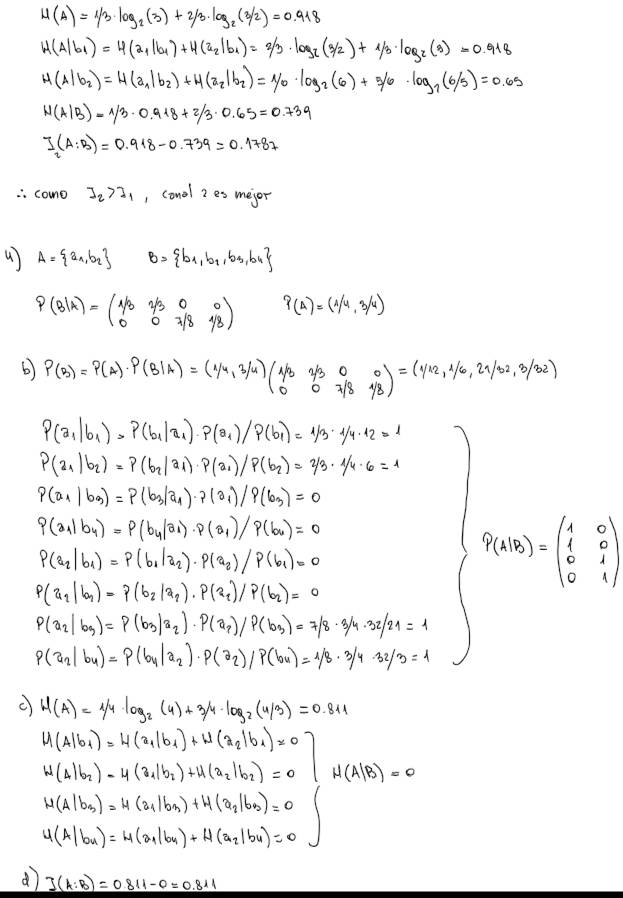 H(A) = 1/3·log₂(3) + 2/3·log₂(3/2) = 0.918
H(A|b1) = H(a1|b1) + H(a2|b1) = 2/3·log₂(3/2) + 1/3·log₂(3) = 0.918
H(A|b2) = H(a1|b2) + H(a2|b2) = 1/6·log₂(6) + 5/6·log₂(6/5) = 0.65
H(A|B) = 1/3·0.918 + 2/3·0.65 = 0.739
I₂(A:B) = 0.918 - 0.739 = 0.1787
∴ como I₂ > I₁, canal 2 es mejor
4) A = {a1, b2} B = {b1, b2, b3, b4}
P(B|A) = (1/3 2/3 0 0 P(A) = (1/4, 3/4)
0 0 7/8 1/8)
b) P(B) = P(A)·P(B|A) = (1/4, 3/4) (1/3 2/3 0 0 = (1/12, 1/6, 21/32, 3/32)
0 0 7/8 1/8)
P(a1|b1) = P(b1|a1)·P(a1)/P(b1) = 1/3·1/4·12 = 1
P(a1|b2) = P(b2|a1)·P(a1)/P(b2) = 2/3·1/4·6 = 1
P(a1|b3) = P(b3|a1)·P(a1)/P(b3) = 0
P(a1|b4) = P(b4|a1)·P(a1)/P(b4) = 0
P(a2|b1) = P(b1|a2)·P(a2)/P(b1) = 0
P(a2|b2) = P(b2|a2)·P(a2)/P(b2) = 0
P(a2|b3) = P(b3|a2)·P(a2)/P(b3) = 7/8·3/4·32/21 = 1
P(a2|b4) = P(b4|a2)·P(a2)/P(b4) = 1/8·3/4·32/3 = 1
P(A|B) = (1 0
1 0
0 1
0 1)
c) H(A) = 1/4·log₂(4) + 3/4·log₂(4/3) = 0.811
H(A|b1) = H(a1|b1) + H(a2|b1) = 0
H(A|b2) = H(a1|b2) + H(a2|b2) = 0
H(A|b3) = H(a1|b3) + H(a2|b3) = 0
H(A|b4) = H(a1|b4) + H(a2|b4) = 0
H(A|B) = 0
d) I(A:B) = 0.811 - 0 = 0.811